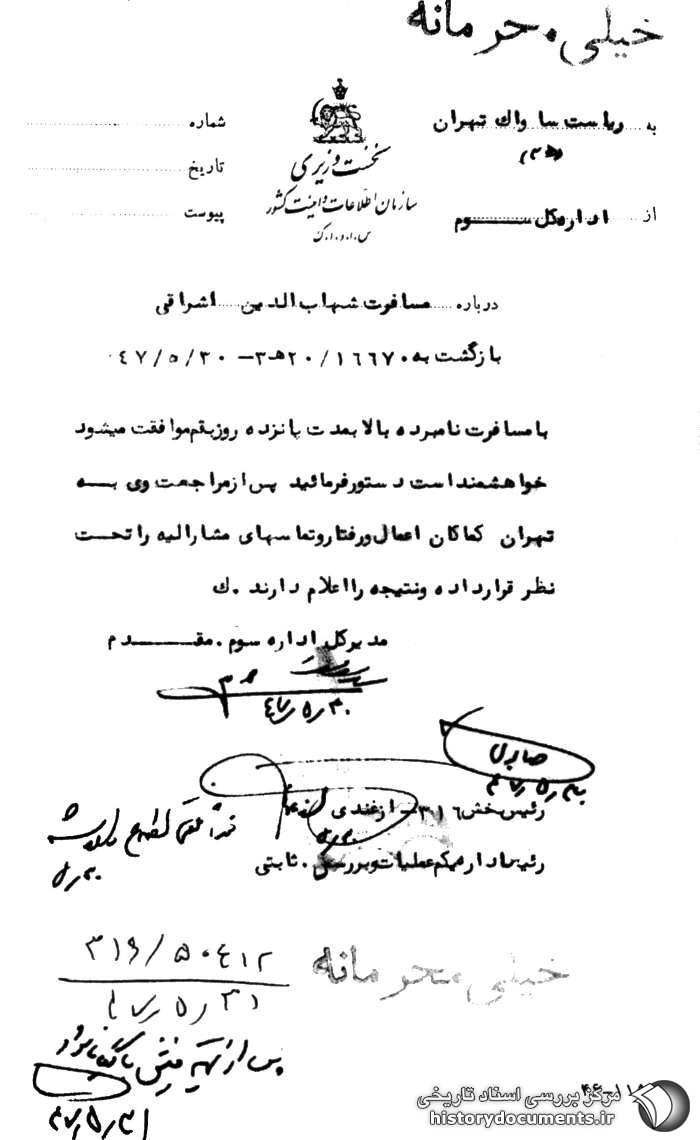 خیلی محرمانه
به ریاست ساواك تهران
شماره
(۳۵)
نخست وزیری
تاریخ
سازمان اطلاعات و امنیت کشور
س.ا.و.ا.ک
از اداره‌كل سوم
پیوست
درباره مسافرت شهاب الدین اشراقی
بازگشت به ۲۰/۱۶۶۷۰هـ۳ - ۴۷/۵/۳۰
با مسافرت نامبرده بالا بمدت پانزده روز بقم موافقت میشود
خواهشمند است دستور فرمائید پس از مراجعت وی به
تهران كماكان اعمال و رفتار و تماسهای مشارالیه را تحت
نظر قرار داده و نتیجه را اعلام دارند .ك
مدیركل اداره سوم . مقدم
۴۷/۵/۳۰
صابری
۴۷/۵/۳۰
رئیس بخش ۳۱۶ - ازغندی
رئیس اداره یكم عملیات و بررسی . ثابتی
۳۰/۵
خیلی محرمانه
۳۱۶/۵۰۴۱۲
۴۷/۵/۳۱
پس از تهیه فیش بایگانی شود
۴۷/۵/۳۱
مرکز بررسی اسناد تاریخی
historydocuments.ir